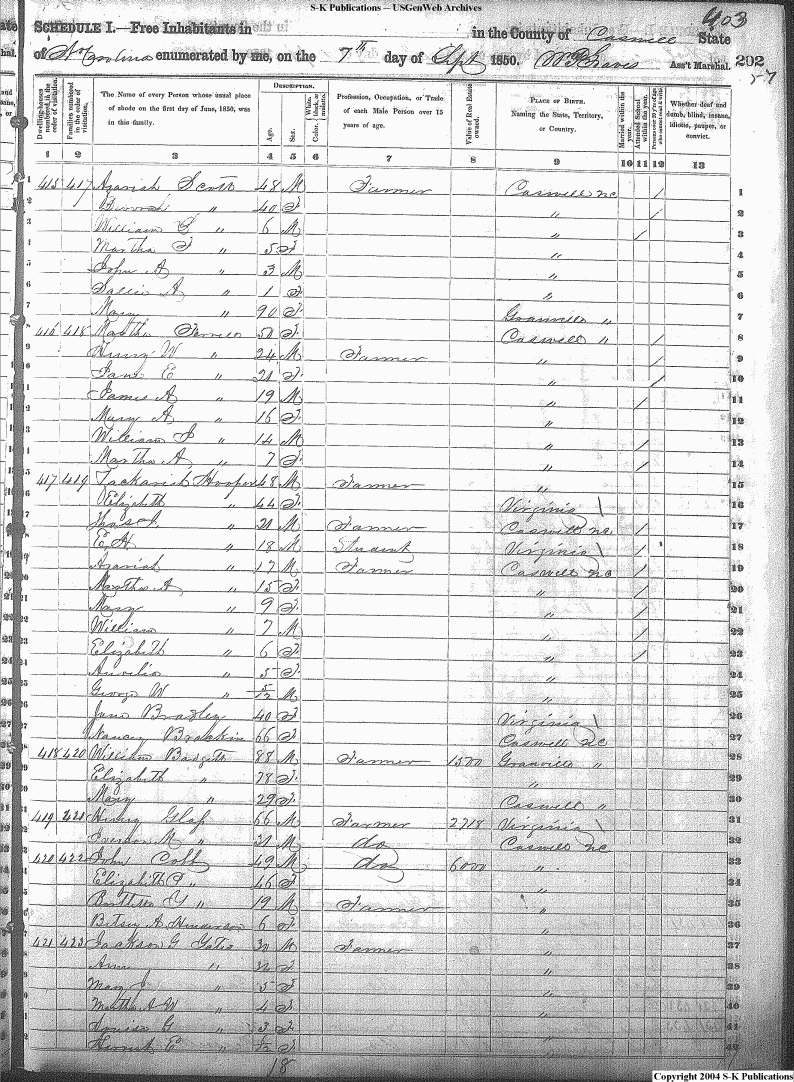 S-K Publications – USGenWeb Archives
403
SCHEDULE I.—Free Inhabitants in in the County of Caswell State
of N Carolina enumerated by me, on the 7th day of Sept 1850. Ass't Marshal. 202
Dwelling-houses numbered in the order of visitation. Families numbered in the order of visitation. The Name of every Person whose usual place of abode on the first day of June, 1850, was in this family. DESCRIPTION. Age. Sex. Color, White, black, or mulatto. Profession, Occupation, or Trade of each Male Person over 15 years of age. Value of Real Estate owned. PLACE OF BIRTH. Naming the State, Territory, or Country. Married within the year. Attended School within the year. Persons over 20 y'rs of age who cannot read & write. Whether deaf and dumb, blind, insane, idiotic, pauper, or convict.
1 2 3 4 5 6 7 8 9 10 11 12 13
1 415 417 Azariah Scott 48 M Farmer Caswell NC / 1
2 " 40 F " / 2
3 William G " 6 M " / 3
4 Martha F " 5 F " 4
5 John A " 3 M " 5
6 Sallie A " 1 F " 6
7 Mary " 90 F Granville " 7
8 416 418 Martha 50 F Caswell " / 8
9 Henry W " 24 M Farmer " / 9
10 Jane E " 21 F " / 10
11 James A " 19 M " / 11
12 Mary A " 16 F " 12
13 William P " 14 M " / 13
14 Martha A " 7 F " / 14
15 417 419 Zackariah Hooper 48 M Farmer " 15
16 Elizabeth " 44 F Virginia \ 16
17 " 21 M Farmer Caswell NC / 17
18 E H " 18 M Student Virginia \ / 18
19 Azariah " 17 M Farmer Caswell NC / 19
20 Martha A " 15 F " / 20
21 Mary " 9 F " / 21
22 William " 7 M " / 22
23 Elizabeth " 6 F " / 23
24 Aurelia " 5 F " 24
25 George W " 5/12 M " 25
26 Jane Bradley 40 F Virginia \ 26
27 Nancy Brackin 66 F Caswell NC 27
28 418 420 William Badgett 88 M Farmer 1500 Granville " 28
29 Elizabeth " 78 F " 29
30 Mary " 29 F Caswell " 30
31 419 421 Henry Glass 66 M Farmer 2718 Virginia \ 31
32 Iverson M " 31 M do Caswell NC 32
33 420 422 John Cobb 49 M do 6000 " 33
34 Elizabeth P " 46 F " 34
35 Y " 19 M Farmer " 35
36 Betsey A Henderson 6 F " 36
37 421 423 Jackson G Gatis 30 M Farmer " 37
38 Ann " 32 F " 38
39 Mary J " 5 F " 39
40 Martha A W " 4 F " 40
41 Louisa G " 3 F " 41
42 E " F " 42
18
Copyright 2004 S-K Publications